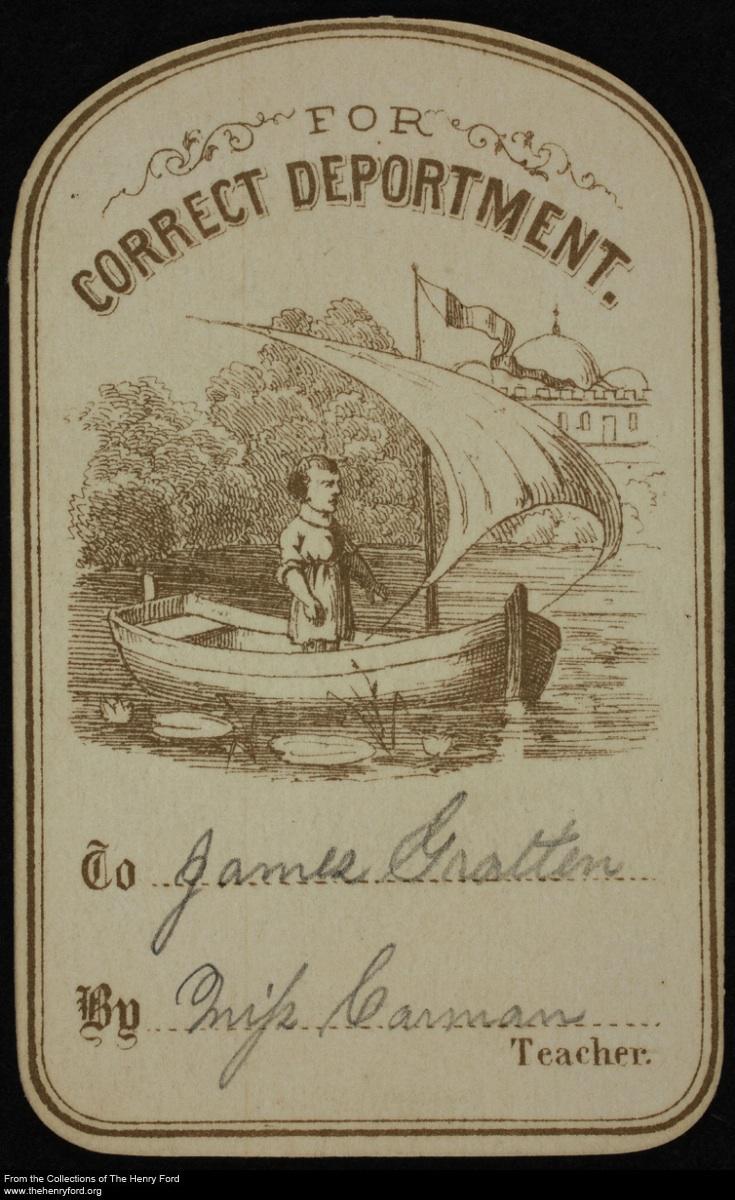 FOR
CORRECT DEPORTMENT.
To James Gratten
By Miss Carman
Teacher.
From the Collections of The Henry Ford
www.thehenryford.org